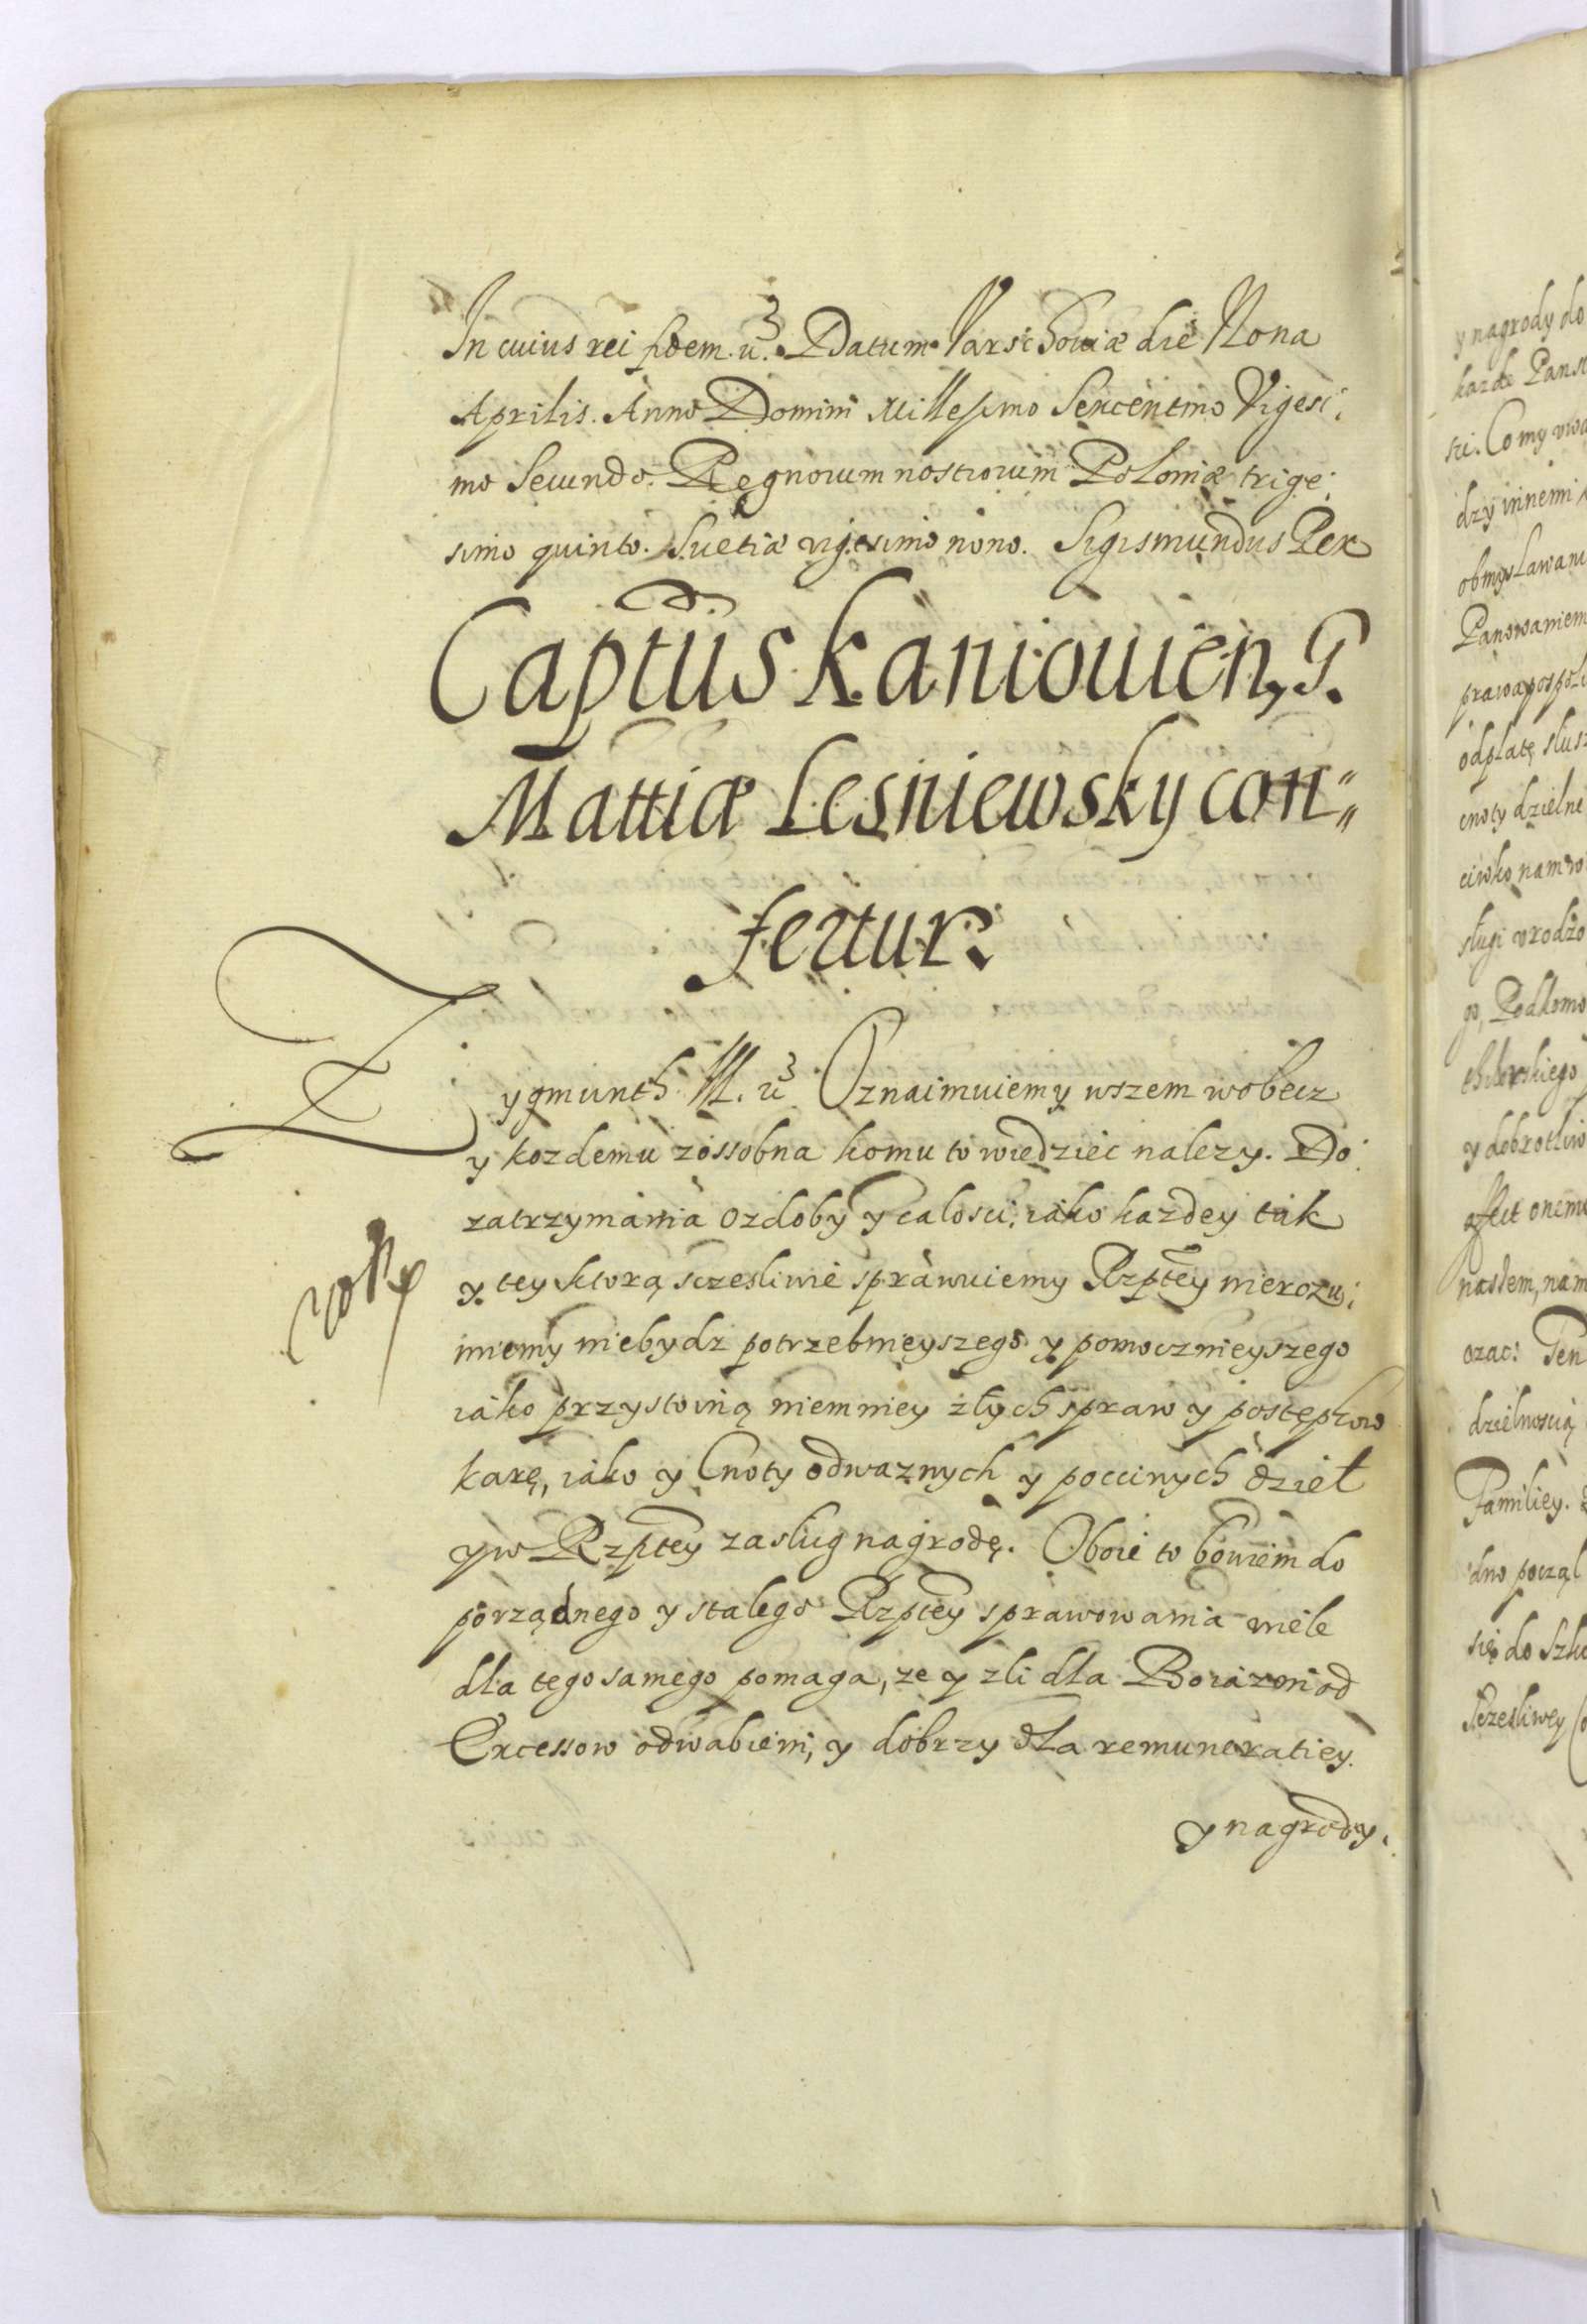 In cuius rei fidem. etc. Datum Varschowiæ die Nona
Aprilis. Anno Domini Millesimo Sexcentmo Vigesi:
mo Secundo. Regnorum nostrorum Poloniæ trige:
simo quinto. Suetiæ vigesimo nono. Sigismundus Rex
Captüs Kaniouien, G.
Mattiæ Lesniewsky con„
fertur.
Zygmunth III. etc. Oznaimuiemy wszem wobecz
y kozdemu zossobna komu to wiedziec nalezy. Do
zatrzymania ozdoby y calosci, iako kazdey tak
y tey ktorą sczesliwie sprawuiemy Rzptey nierozu:
miemy niebydz potrzebnieyszego y pomocznieyszego
iako przystoiną niemniey złych spraw y postępkow
karę, iako y Cnoty odwaznych y poccinych dzieł
y w Rzptey zasług nagrodę. Oboie to bowiem do
porządnego y stalego Rzptey sprawowania wiele
dla tego samego pomaga, ze y zli dla Boiazni od
Excessow odwabieni, y dobrzy dla remuneratiey.
y nagrody.
y nagrody do
kazde Pans
dzy innemi
obmyslawani
Panowaniem
prawa pospoli
odplatę slus
cnoty dzielne
ciwko nam
slugi vrodzo
go, Podkomo
y dobrotliw
affect onemu
naszem, nam
ozac: Ten
dzielnoscią
Familiey.
dno począl
się do Szko
Sczesliwey